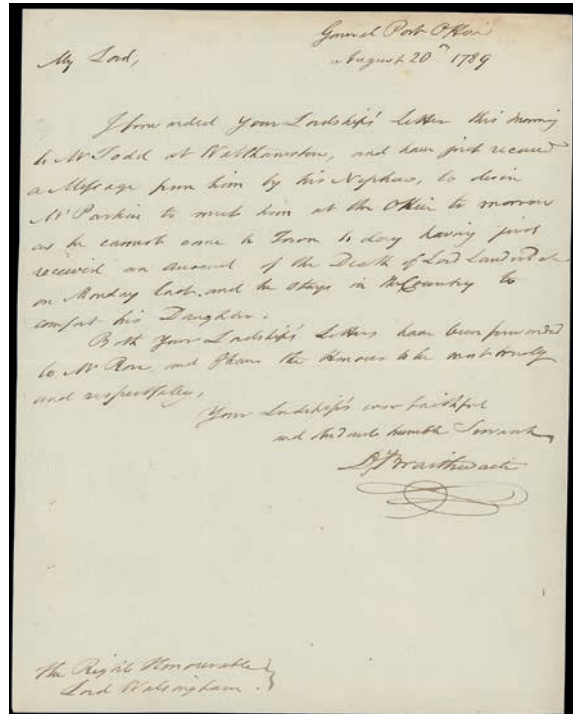 General Post Office
August 20th 1789
My Lord,
I forwarded your Lordship's Letter this morning
to Mr Todd at Walthamstow, and have just received
a Message from him by his Nephew, to desire
Mr Parkin to meet him at the Office to morrow
as he cannot come to Town to day having just
received an Account of the Death of Lord Lauderdale
on Monday last, and he stays in the Country to
comfort his Daughter.
Both your Lordship's Letters have been forwarded
to Mr Rose, and I have the Honour to be most truly
and respectfully,
Your Lordship's ever faithful
and obedient humble Servant
D Braithwaite
The Right Honourable
Lord Walsingham.